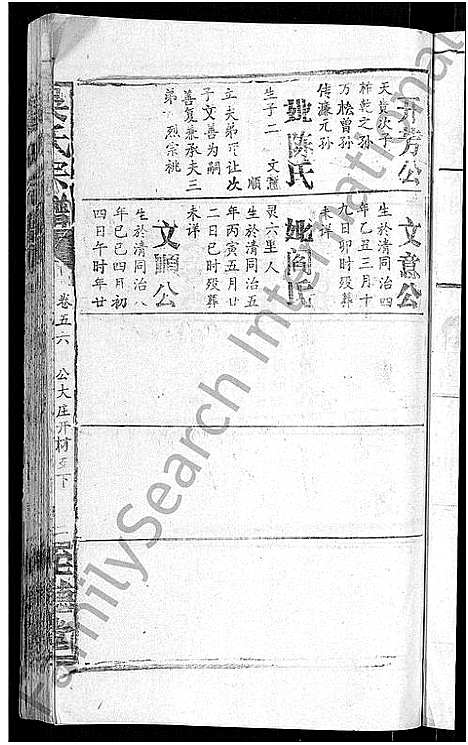 开芳公
天贵次子
柞乾之孙
万桧曾孙
传濂元孙
妣陈氏
生子二 文意 顺
立夫弟开让次
子文善为嗣
善复兼承夫三
弟开烈宗祧
文意公
生於清同治四
年乙丑三月十
九日卯时殁葬
未详
妣阎氏
灵六里人
生於清同治五
年丙寅五月廿
二日巳时殁葬
未详
文顺公
生於清同治八
年己巳四月初
四日午时年廿
吴氏宗谱
卷五六
公大庄开
下
二
至德堂
FamilySearch International